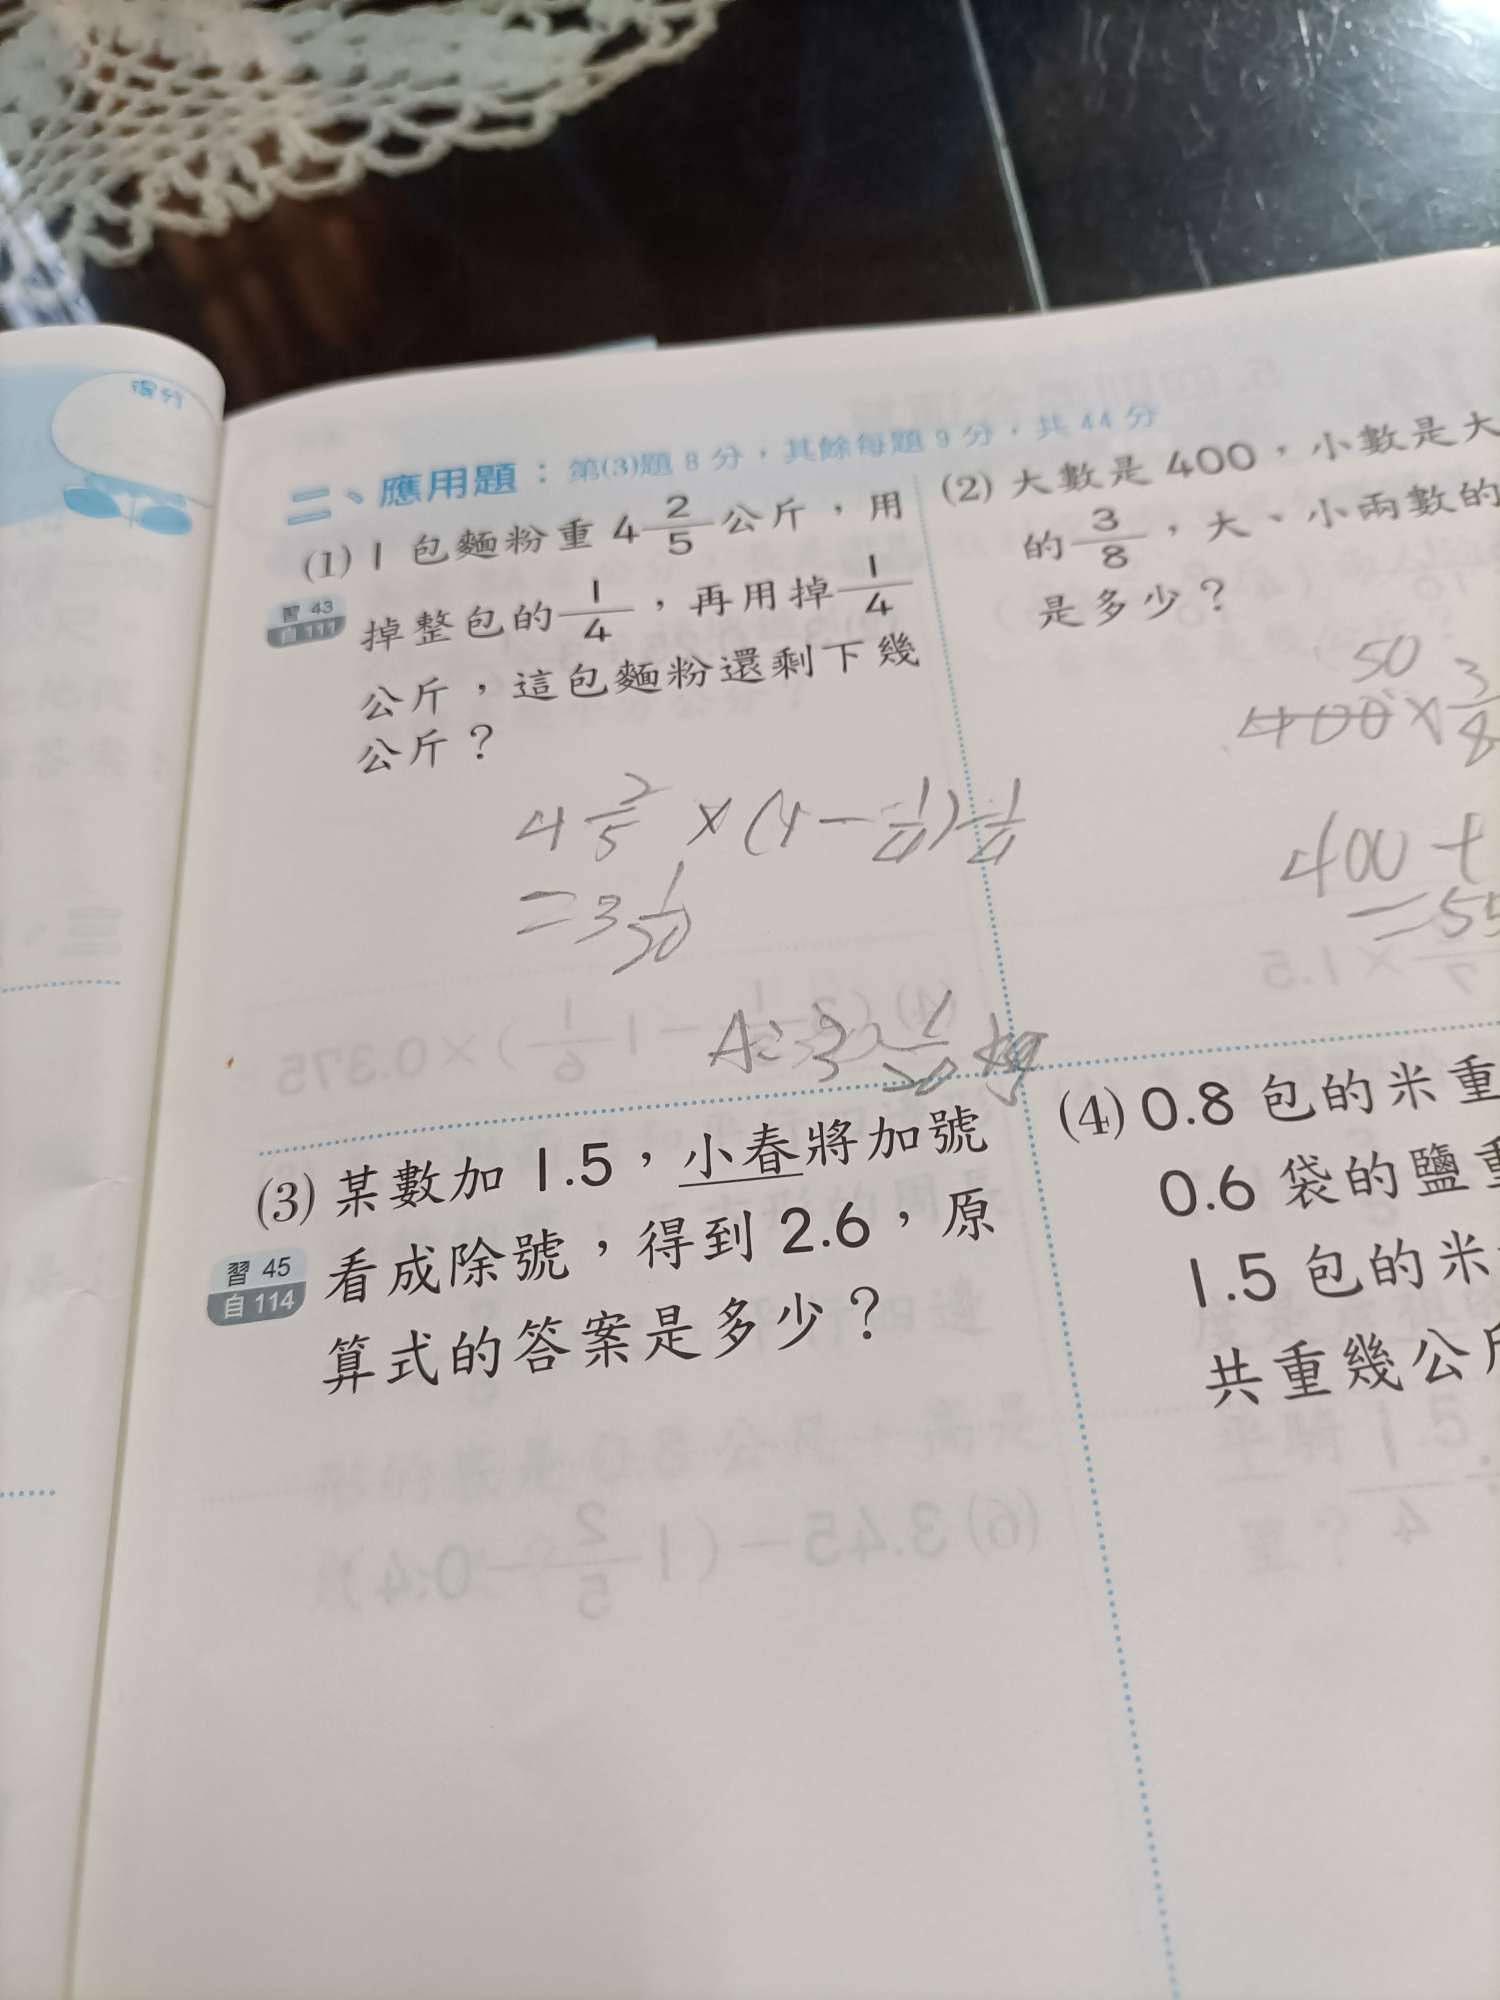 得分
二、應用題：第(3)題 8 分，其餘每題 9 分，共 44 分
(1) 1 包麵粉重 4 2/5 公斤，用
習 43
自 111
掉整包的 1/4，再用掉 1/4
公斤，這包麵粉還剩下幾
公斤？
4 2/5 × (1 - 1/4) - 1/4
= 3 1/20
A: 3 1/20 kg
(2) 大數是 400，小數是大
的 3/8，大、小兩數的
是多少？
50
400 × 3/8
400 +
= 55
(3) 某數加 1.5，小春將加號
習 45
自 114
看成除號，得到 2.6，原
算式的答案是多少？
(4) 0.8 包的米重
0.6 袋的鹽重
1.5 包的米
共重幾公斤